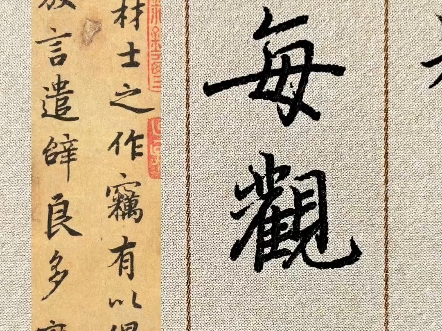 每觀
材士之作竊有以得
放言遣辭良多變